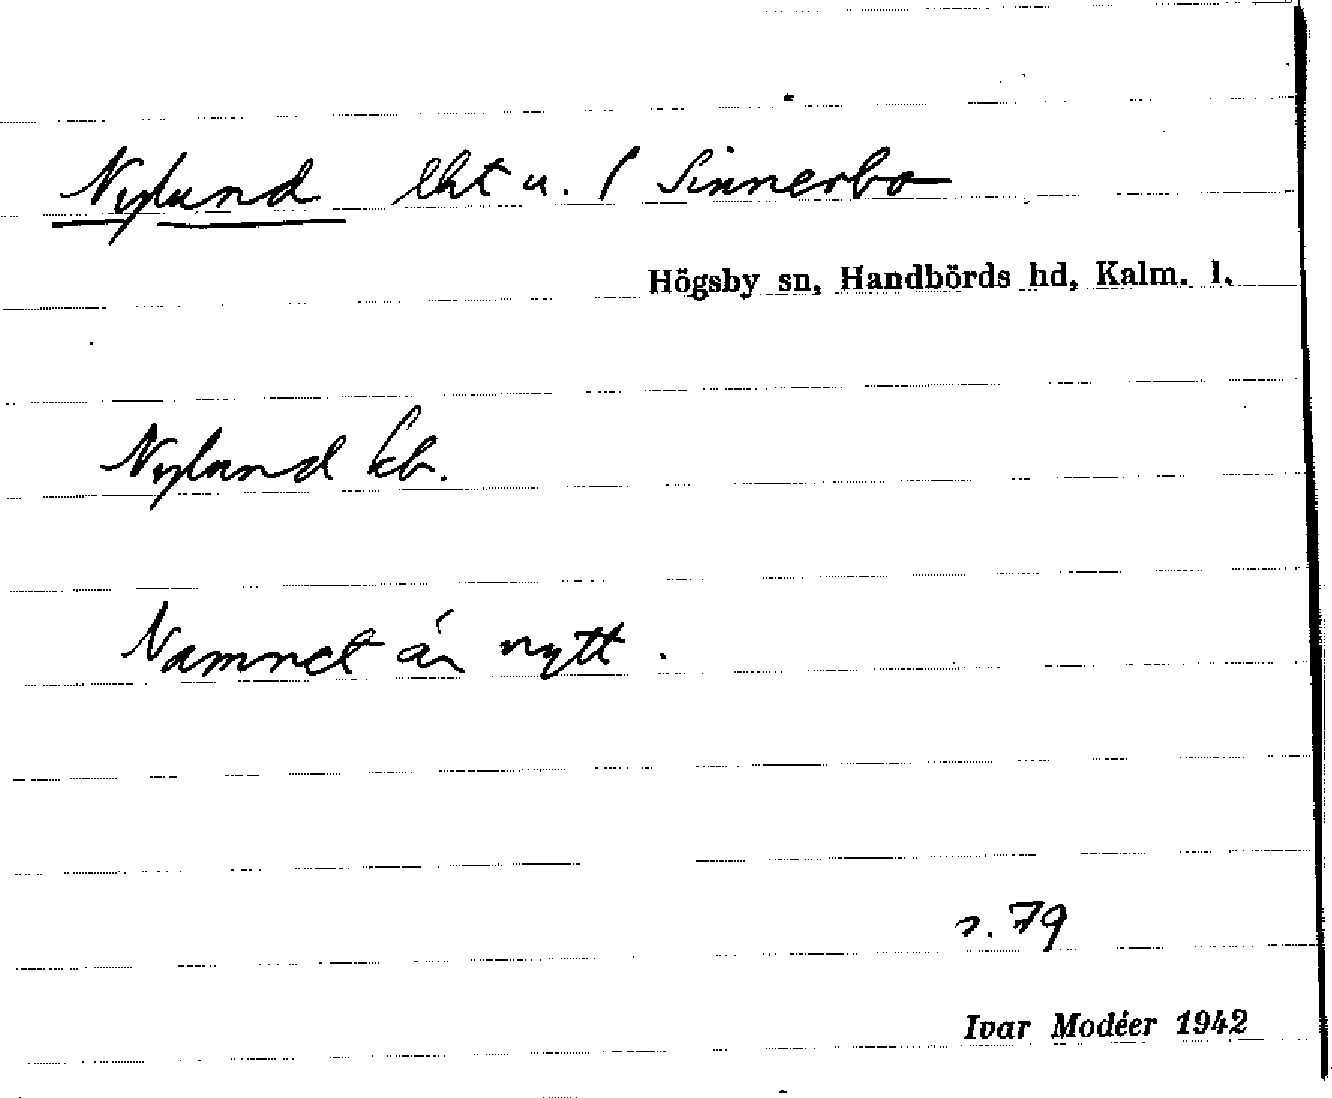 Nylund lht u. / Sinnerbo
Högsby sn, Handbörds hd, Kalm. l.
Nylund kb.
Namnet är nytt.
s. 79
Ivar Modéer 1942